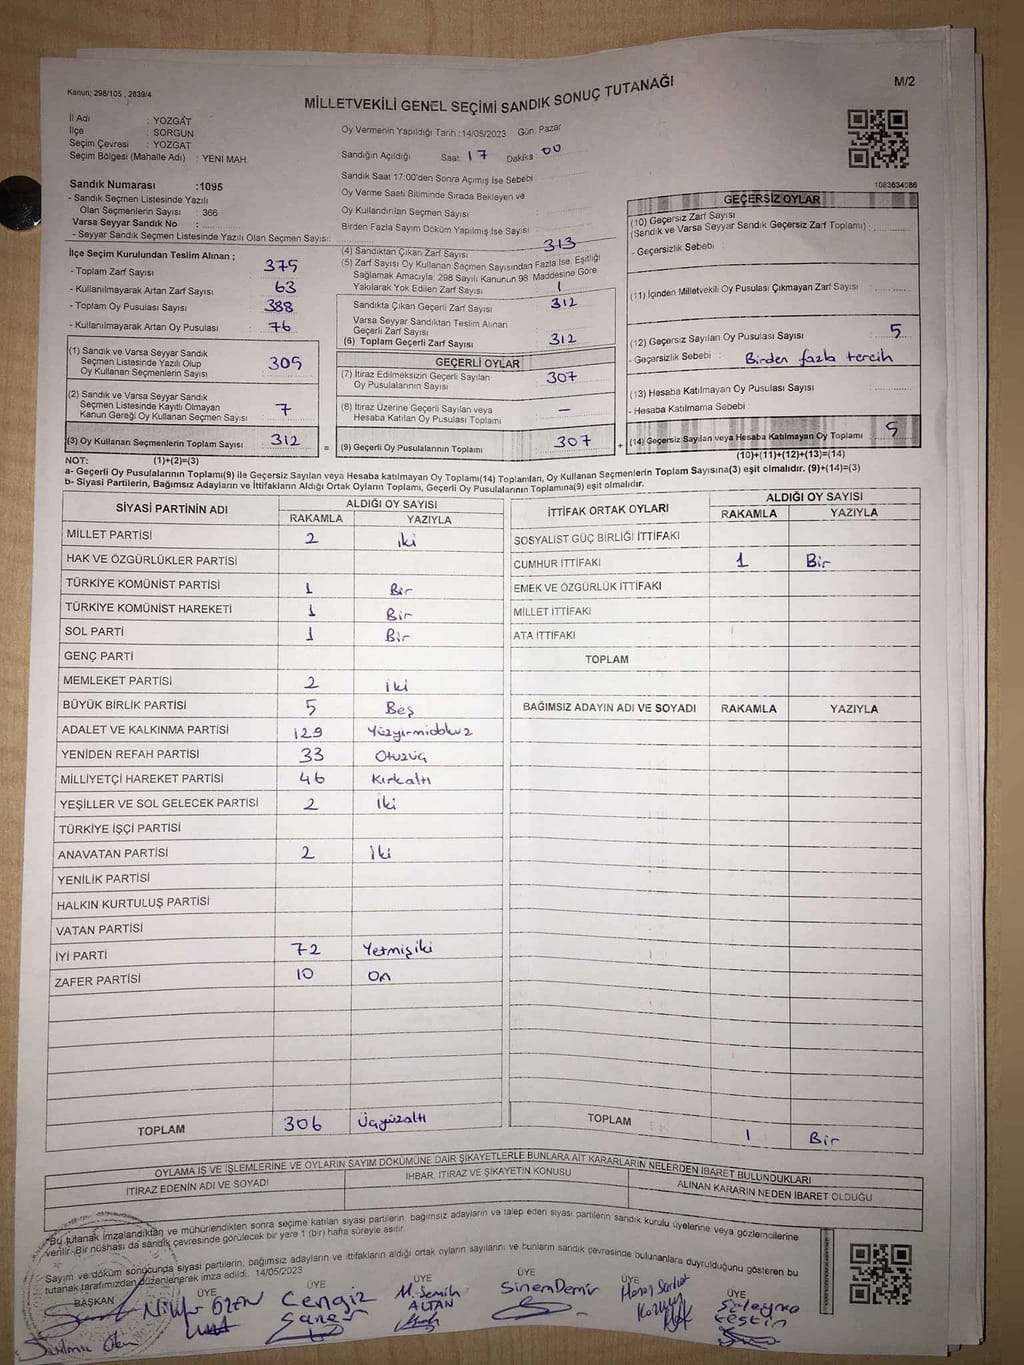 Kanun; 298/105 , 2839/4
M/2
MİLLETVEKİLİ GENEL SEÇİMİ SANDIK SONUÇ TUTANAĞI
İl Adı : YOZGAT
İlçe : SORGUN
Seçim Çevresi : YOZGAT
Seçim Bölgesi (Mahalle Adı) : YENİ MAH.
Sandık Numarası :1095
- Sandık Seçmen Listesinde Yazılı
Olan Seçmenlerin Sayısı : 366
Varsa Seyyar Sandık No :
- Seyyar Sandık Seçmen Listesinde Yazılı Olan Seçmen Sayısı:
Oy Vermenin Yapıldığı Tarih : 14/05/2023 Gün: Pazar
Sandığın Açıldığı Saat 17 Dakika 00
Sandık Saat 17:00'den Sonra Açılmış İse Sebebi
Oy Verme Saati Bitiminde Sırada Bekleyen ve
Oy Kullandırılan Seçmen Sayısı
Birden Fazla Sayım Döküm Yapılmış İse Sayısı
1083634086
İlçe Seçim Kurulundan Teslim Alınan ;
- Toplam Zarf Sayısı 375
- Kullanılmayarak Artan Zarf Sayısı 63
- Toplam Oy Pusulası Sayısı 388
- Kullanılmayarak Artan Oy Pusulası 76
(1) Sandık ve Varsa Seyyar Sandık
Seçmen Listesinde Yazılı Olup
Oy Kullanan Seçmenlerin Sayısı 305
(2) Sandık ve Varsa Seyyar Sandık
Seçmen Listesinde Kayıtlı Olmayan
Kanun Gereği Oy Kullanan Seçmen Sayısı 7
(3) Oy Kullanan Seçmenlerin Toplam Sayısı 312 =
(4) Sandıktan Çıkan Zarf Sayısı 313
(5) Zarf Sayısı Oy Kullanan Seçmen Sayısından Fazla İse, Eşitliği
Sağlamak Amacıyla; 298 Sayılı Kanunun 98. Maddesine Göre
Yakılarak Yok Edilen Zarf Sayısı 1
Sandıkta Çıkan Geçerli Zarf Sayısı 312
Varsa Seyyar Sandıktan Teslim Alınan
Geçerli Zarf Sayısı
(6) Toplam Geçerli Zarf Sayısı 312
GEÇERLİ OYLAR
(7) İtiraz Edilmeksizin Geçerli Sayılan
Oy Pusulalarının Sayısı 307
(8) İtiraz Üzerine Geçerli Sayılan veya
Hesaba Katılan Oy Pusulası Toplamı –
(9) Geçerli Oy Pusulalarının Toplamı 307 +
GEÇERSİZ OYLAR
(10) Geçersiz Zarf Sayısı
(Sandık ve Varsa Seyyar Sandık Geçersiz Zarf Toplamı) :
- Geçersizlik Sebebi :
(11) İçinden Milletvekili Oy Pusulası Çıkmayan Zarf Sayısı
(12) Geçersiz Sayılan Oy Pusulası Sayısı 5
- Geçersizlik Sebebi : Birden fazla tercih
(13) Hesaba Katılmayan Oy Pusulası Sayısı
- Hesaba Katılmama Sebebi :
(14) Geçersiz Sayılan veya Hesaba Katılmayan Oy Toplamı 5
NOT: (1)+(2)=(3)
(10)+(11)+(12)+(13)=(14)
a- Geçerli Oy Pusulalarının Toplamı(9) ile Geçersiz Sayılan veya Hesaba katılmayan Oy Toplamı(14) Toplamları, Oy Kullanan Seçmenlerin Toplam Sayısına(3) eşit olmalıdır. (9)+(14)=(3)
b- Siyasi Partilerin, Bağımsız Adayların ve İttifakların Aldığı Ortak Oyların Toplamı, Geçerli Oy Pusulalarının Toplamına(9) eşit olmalıdır.
SİYASİ PARTİNİN ADI ALDIĞI OY SAYISI
RAKAMLA YAZIYLA
MİLLET PARTİSİ 2 iki
HAK VE ÖZGÜRLÜKLER PARTİSİ
TÜRKİYE KOMÜNİST PARTİSİ 1 Bir
TÜRKİYE KOMÜNİST HAREKETİ 1 Bir
SOL PARTİ 1 Bir
GENÇ PARTİ
MEMLEKET PARTİSİ 2 iki
BÜYÜK BİRLİK PARTİSİ 5 Beş
ADALET VE KALKINMA PARTİSİ 129 Yüzyirmidokuz
YENİDEN REFAH PARTİSİ 33 Otuzüç
MİLLİYETÇİ HAREKET PARTİSİ 46 Kırkaltı
YEŞİLLER VE SOL GELECEK PARTİSİ 2 İki
TÜRKİYE İŞÇİ PARTİSİ
ANAVATAN PARTİSİ 2 İki
YENİLİK PARTİSİ
HALKIN KURTULUŞ PARTİSİ
VATAN PARTİSİ
İYİ PARTİ 72 Yetmişiki
ZAFER PARTİSİ 10 On
TOPLAM 306 Üçyüzaltı
İTTİFAK ORTAK OYLARI ALDIĞI OY SAYISI
RAKAMLA YAZIYLA
SOSYALİST GÜÇ BİRLİĞİ İTTİFAKI
CUMHUR İTTİFAKI 1 Bir
EMEK VE ÖZGÜRLÜK İTTİFAKI
MİLLET İTTİFAKI
ATA İTTİFAKI
TOPLAM
BAĞIMSIZ ADAYIN ADI VE SOYADI RAKAMLA YAZIYLA
TOPLAM 1 Bir
OYLAMA İŞ VE İŞLEMLERİNE VE OYLARIN SAYIM DÖKÜMÜNE DAİR ŞİKAYETLERLE BUNLARA AİT KARARLARIN NELERDEN İBARET BULUNDUKLARI
İTİRAZ EDENİN ADI VE SOYADI İHBAR, İTİRAZ VE ŞİKAYETİN KONUSU ALINAN KARARIN NEDEN İBARET OLDUĞU
Bu tutanak imzalandıktan ve mühürlendikten sonra seçime katılan siyasi partilerin, bağımsız adayların ve talep eden siyasi partilerin sandık kurulu üyelerine veya gözlemcilerine
verilir. Bir nüshası da sandık çevresinde görülecek bir yere 1 (bir) hafta süreyle asılır.
Sayım ve döküm sonucunda siyasi partilerin, bağımsız adayların ve ittifakların aldığı ortak oyların sayılarını ve bunların sandık çevresinde bulunanlara duyrulduğunu gösteren bu
tutanak tarafımızdan düzenlenerek imza edildi. 14/05/2023
BAŞKAN ÜYE ÜYE ÜYE ÜYE ÜYE ÜYE
Cengiz
M. Semih
ALTAN
Sinem Demir